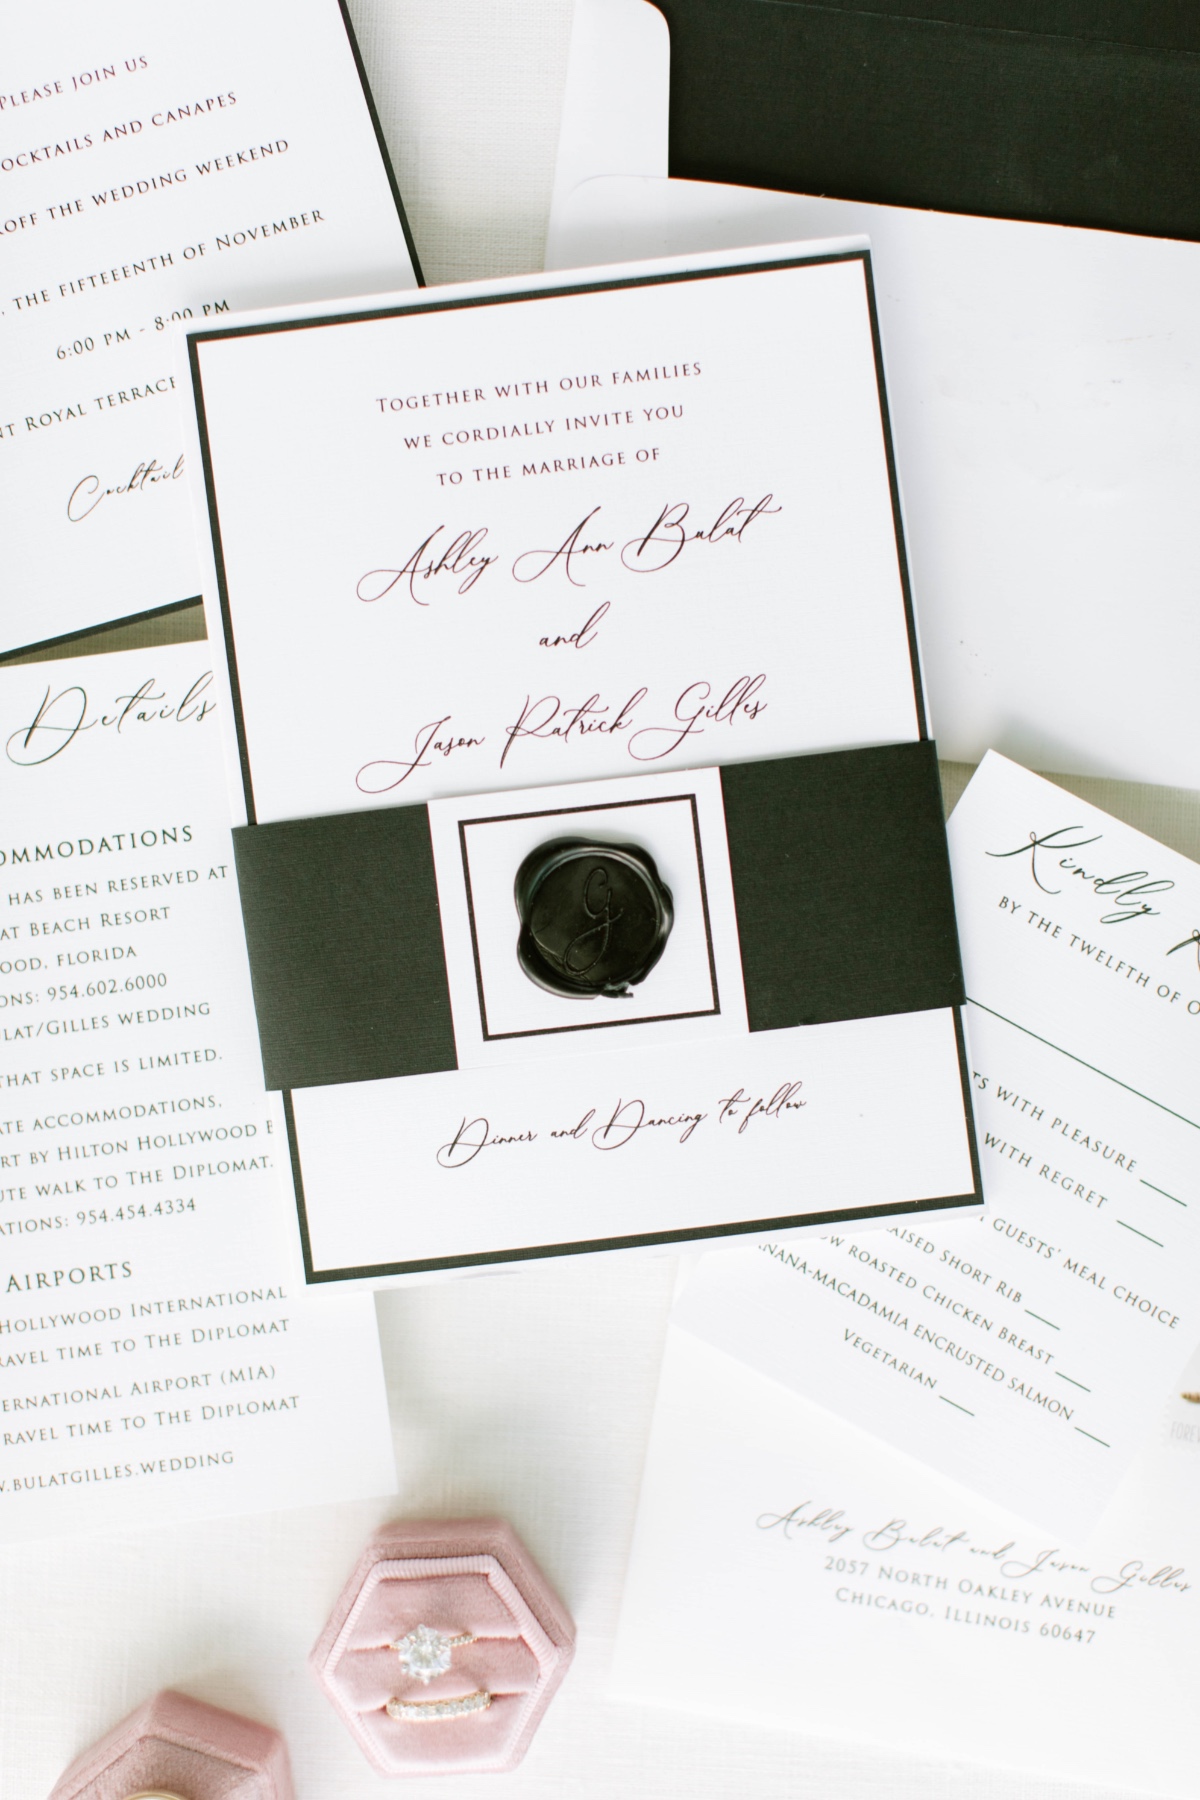 PLEASE JOIN US
COCKTAILS AND CANAPES
OFF THE WEDDING WEEKEND
, THE FIFTEEENTH OF NOVEMBER
6:00 PM - 8:00 PM
NT ROYAL TERRACE
Cocktail
TOGETHER WITH OUR FAMILIES
WE CORDIALLY INVITE YOU
TO THE MARRIAGE OF
Ashley Ann Bulat
and
Jason Patrick Gilles
G
Dinner and Dancing to follow
Details
OMMODATIONS
HAS BEEN RESERVED AT
AT BEACH RESORT
OOD, FLORIDA
ONS: 954.602.6000
ULAT/GILLES WEDDING
THAT SPACE IS LIMITED.
ATE ACCOMMODATIONS,
RT BY HILTON HOLLYWOOD B
UTE WALK TO THE DIPLOMAT.
ATIONS: 954.454.4334
AIRPORTS
HOLLYWOOD INTERNATIONAL
RAVEL TIME TO THE DIPLOMAT
ERNATIONAL AIRPORT (MIA)
RAVEL TIME TO THE DIPLOMAT
W.BULATGILLES.WEDDING
Kindly R
BY THE TWELFTH OF O
TS WITH PLEASURE
WITH REGRET
GUESTS' MEAL CHOICE
AISED SHORT RIB
OW ROASTED CHICKEN BREAST
NANA-MACADAMIA ENCRUSTED SALMON
VEGETARIAN
FOREV
Ashley Bulat and Jason Gilles
2057 NORTH OAKLEY AVENUE
CHICAGO, ILLINOIS 60647